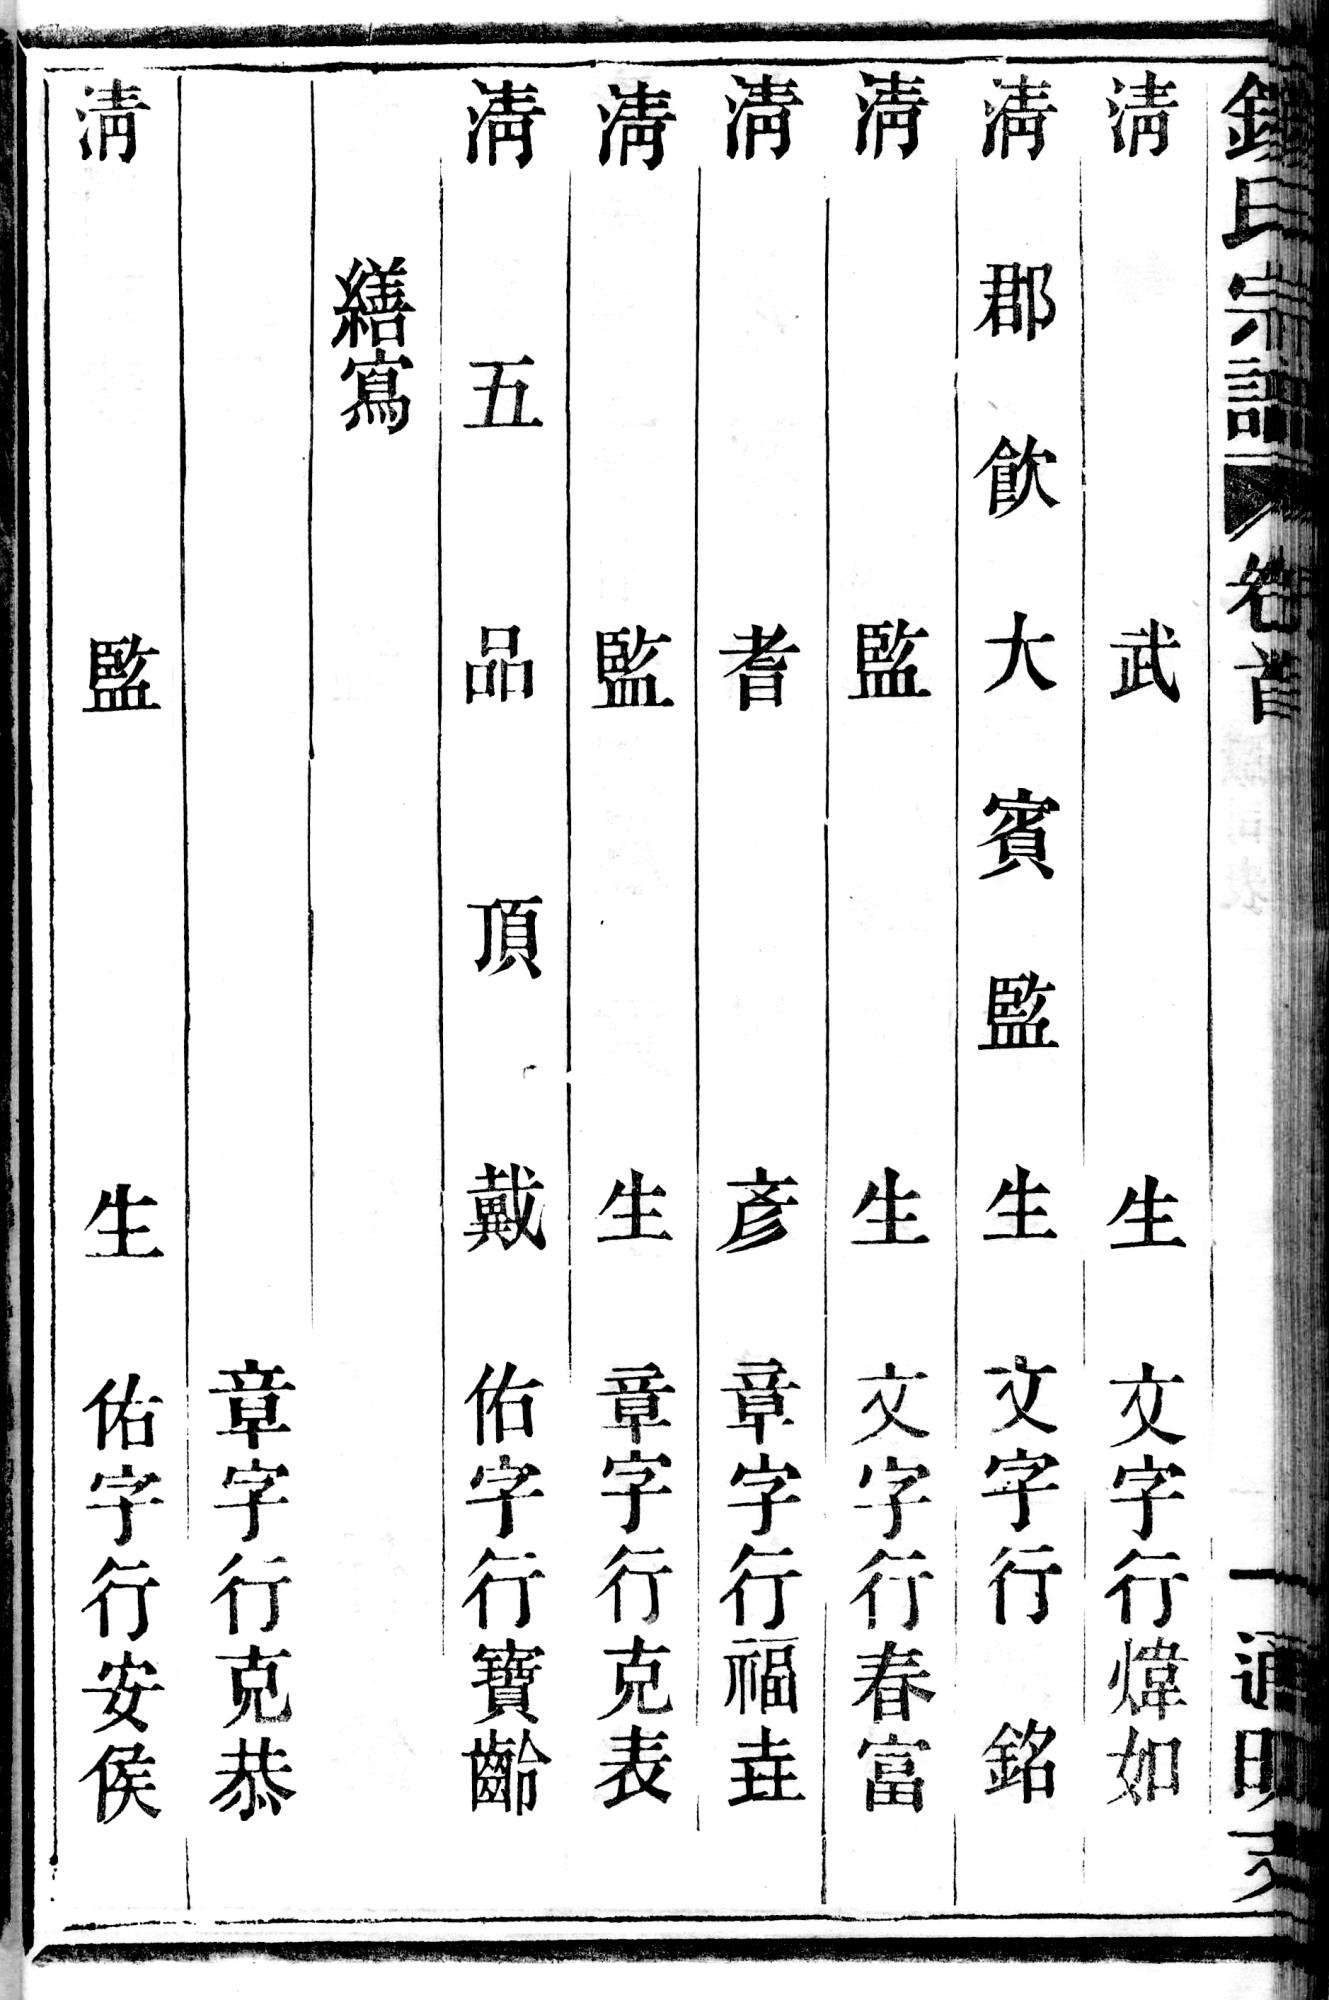 氏宗譜 卷首 一
清武生 文字行煒如
清郡飲大賓監生 文字行銘
清監生 文字行春富
清耆彥 章字行福垚
清監生 章字行克表
清五品頂戴 佑字行寶齡
繕寫
章字行克恭
清監生 佑字行安侯